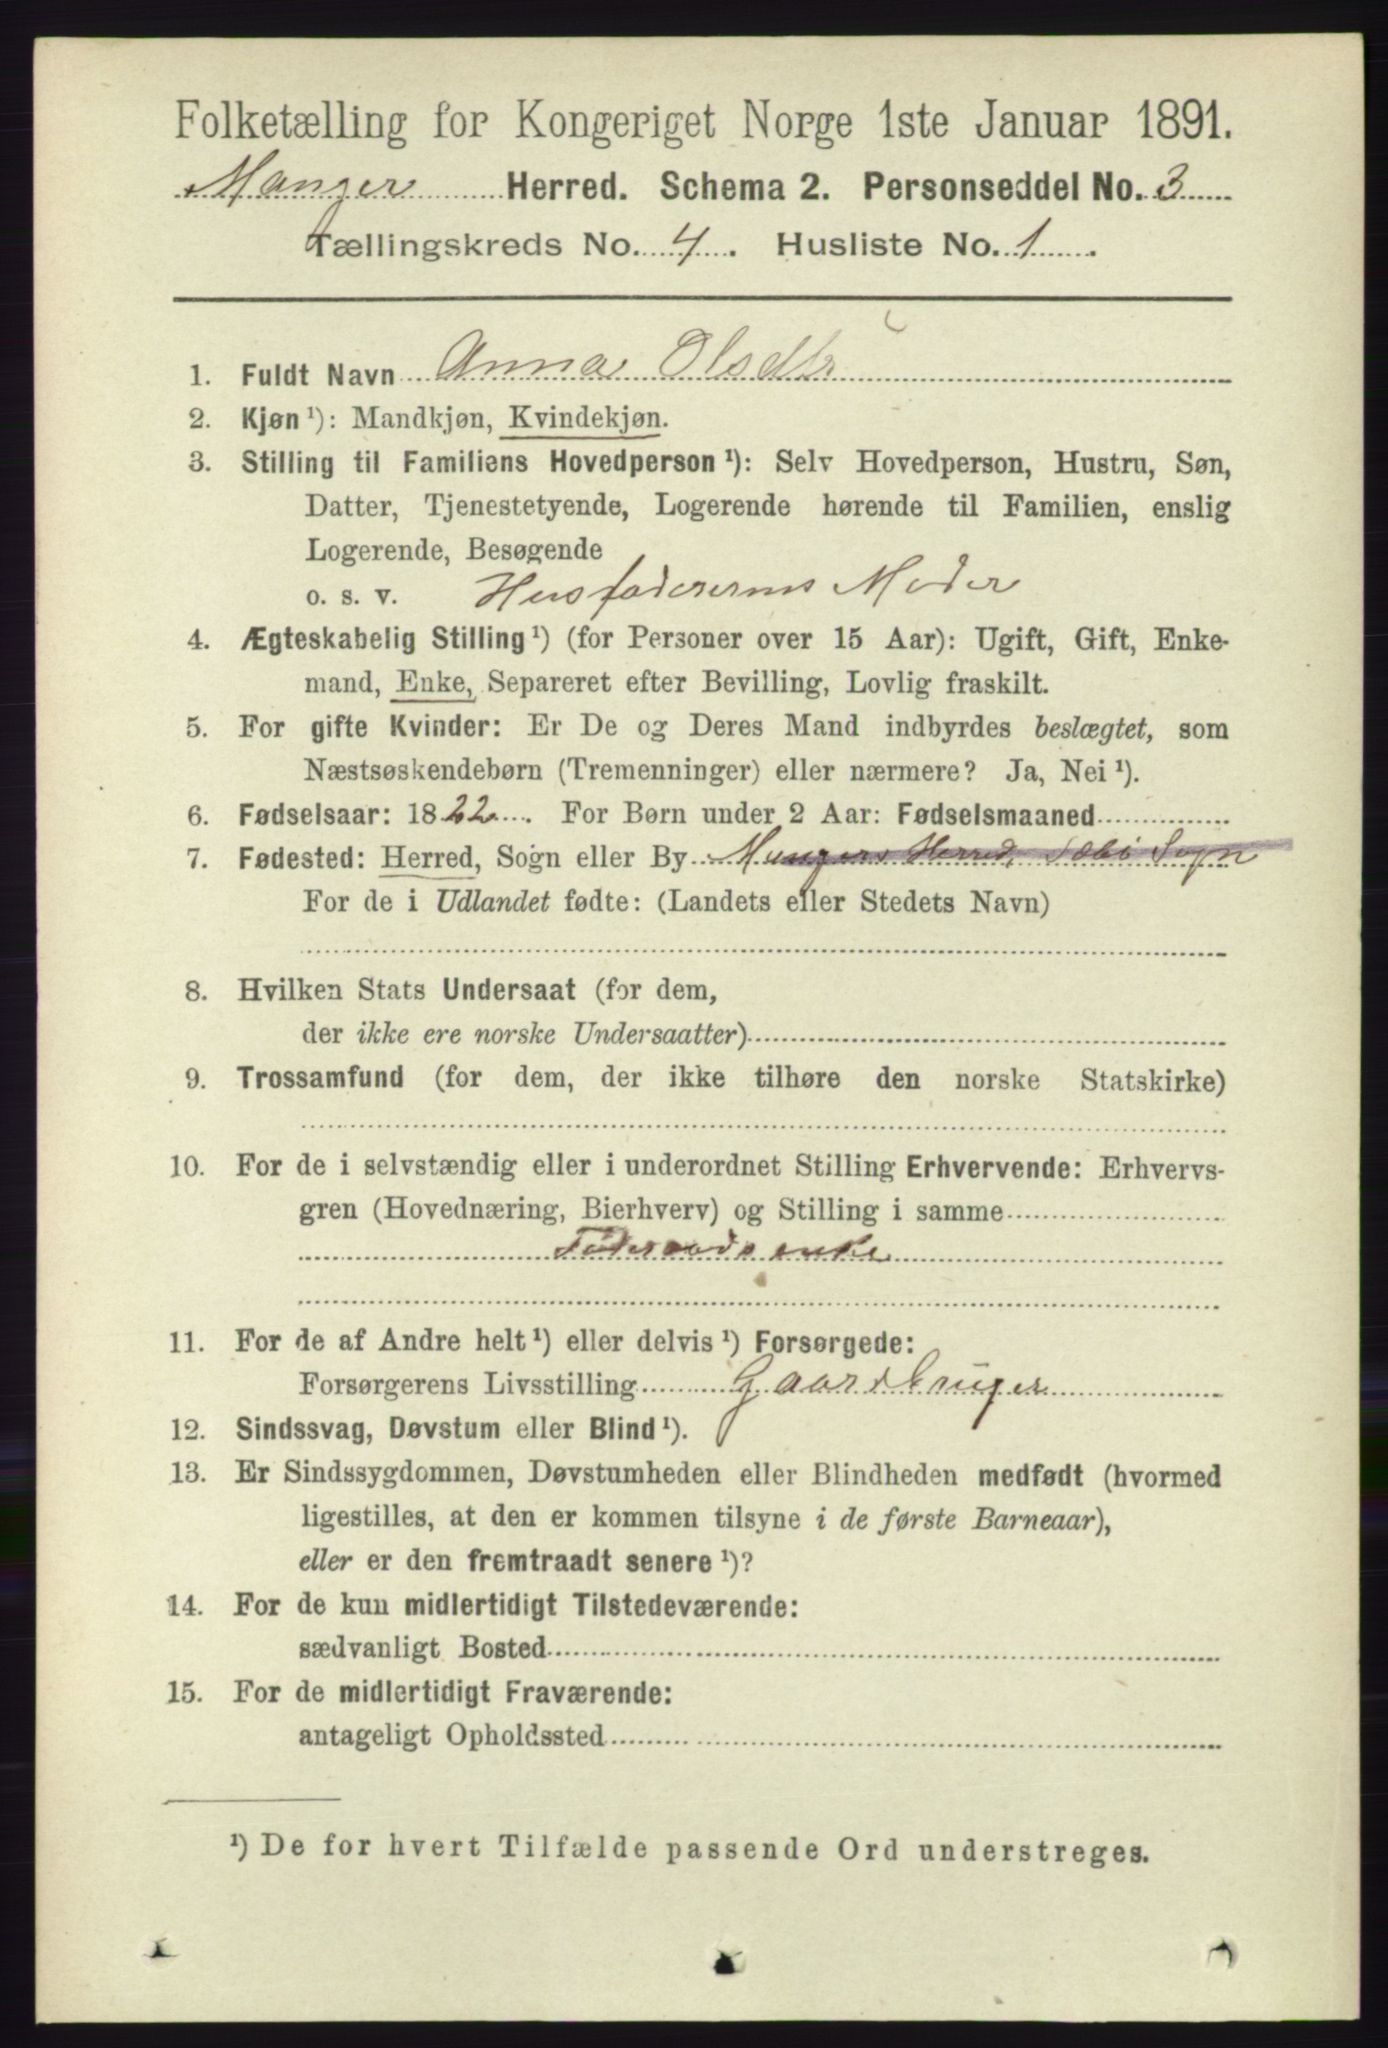 Folketælling for Kongeriget Norge 1ste Januar 1891.
Manger Herred. Schema 2. Personseddel No. 3
Tællingskreds No. 4. Husliste No. 1.
1. Fuldt Navn Anna Olsdtr
2. Kjøn¹): Mandkjøn, Kvindekjøn.
3. Stilling til Familiens Hovedperson¹): Selv Hovedperson, Hustru, Søn,
Datter, Tjenestetyende, Logerende hørende til Familien, enslig
Logerende, Besøgende
o. s. v. Husfaderens Moder
4. Ægteskabelig Stilling¹) (for Personer over 15 Aar): Ugift, Gift, Enke-
mand, Enke, Separeret efter Bevilling, Lovlig fraskilt.
5. For gifte Kvinder: Er De og Deres Mand indbyrdes beslægtet, som
Næstsøskendebørn (Tremenninger) eller nærmere? Ja, Nei¹).
6. Fødselsaar: 1822. For Børn under 2 Aar: Fødselsmaaned
7. Fødested: Herred, Sogn eller By Mangers Herred, Sæbø Sogn
For de i Udlandet fødte: (Landets eller Stedets Navn)
8. Hvilken Stats Undersaat (for dem,
der ikke ere norske Undersaatter)
9. Trossamfund (for dem, der ikke tilhøre den norske Statskirke)
10. For de i selvstændig eller i underordnet Stilling Erhvervende: Erhvervs-
gren (Hovednæring, Bierhverv) og Stilling i samme
Føderaadsenke
11. For de af Andre helt¹) eller delvis¹) Forsørgede:
Forsørgerens Livsstilling Gaardbruger
12. Sindssvag, Døvstum eller Blind¹).
13. Er Sindssygdommen, Døvstumheden eller Blindheden medfødt (hvormed
ligestilles, at den er kommen tilsyne i de første Barneaar),
eller er den fremtraadt senere¹)?
14. For de kun midlertidigt Tilstedeværende:
sædvanligt Bosted
15. For de midlertidigt Fraværende:
antageligt Opholdssted
¹) De for hvert Tilfælde passende Ord understreges.